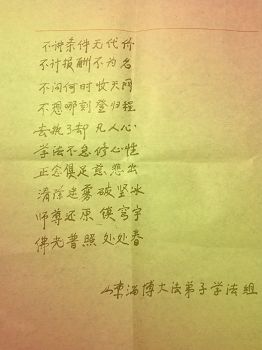 不讲条件无代价
不讨报酬不为名
不问何时收天网
不想哪刻登归程
去执了却凡人心
学法不怠修心性
正念俱足慈悲出
清除迷雾破坚冰
师尊还原镇寰宇
佛光普照处处春
山东淄博大法弟子学法组